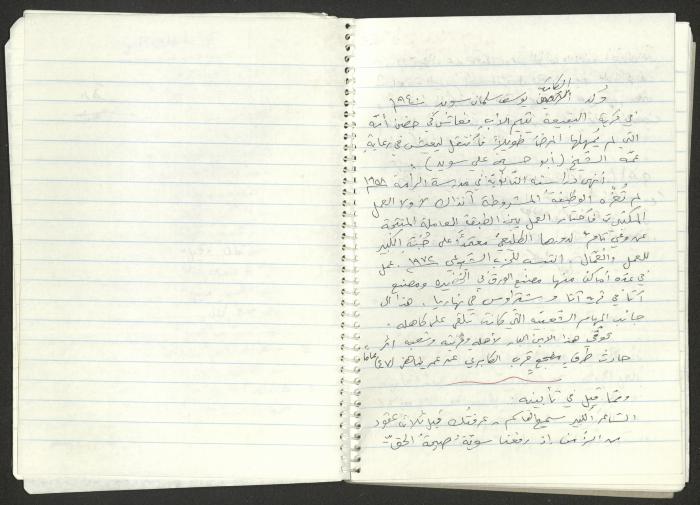 الكاتب
وُلد يوسف سلمان سويد سنة ١٩٤٠
في قرية البقيعة يتيم الأب فعاش في حضن أمّه
التي لم يُمهلها المرض طويلاً فانتقل ليعيش في رعاية
عمّه الشيخ (أبو حسين علي سويد).
أنهى دراسته الثانوية في مدرسة الرامة ١٩٥٨
لم تُغره الوظيفة المشروطة آنذاك ولا العمل
المكتبي فاختار العمل بين الطبقة العاملة المنتجة
عن وعي تام لدورها الطليعي معتمداً على حُبّه الكبير
للعمل والعُمّال. انتسب للحزب الشيوعي ١٩٧٢. عمل
في عدّة أماكن منها مصنع الورق في الخضيرة ومصنع
آتا في قرية آتا و شتراوس في نهاريا. هذا إلى
جانب المهام الشعبية التي كانت تلقى على كاهله.
توفّي هذا الابن البار لأهله وقريته وشعبه إثر
حادث طرق مفجع قرب الكابري عن عمر يناهز (٤٧) عاماً
وممّا قيل في تأبينه:
الشاعر الكبير سميح القاسم - عرفتك قبل ثلاثة عقود
من الزمن إذ رفعنا سويّة "صيحة الحق"